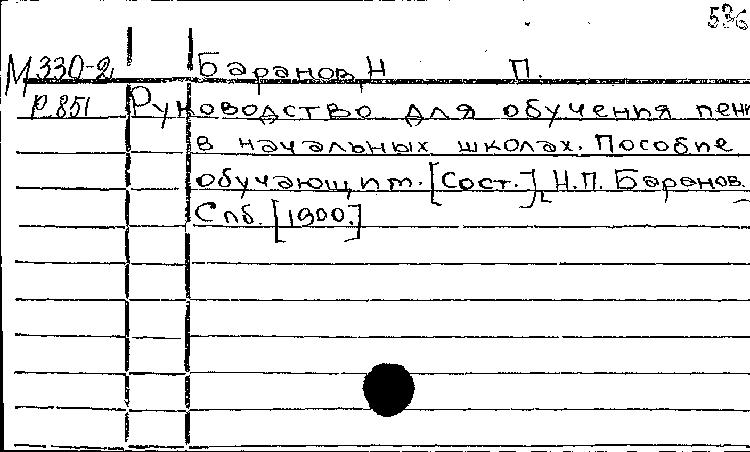 536
М 330-2 Баранов, Н П.
Р 851 Руководство для обучения пен
в начальных школах. Пособие
обучающим. [Сост.] Н.П. Баранов.
Спб. [1900.]